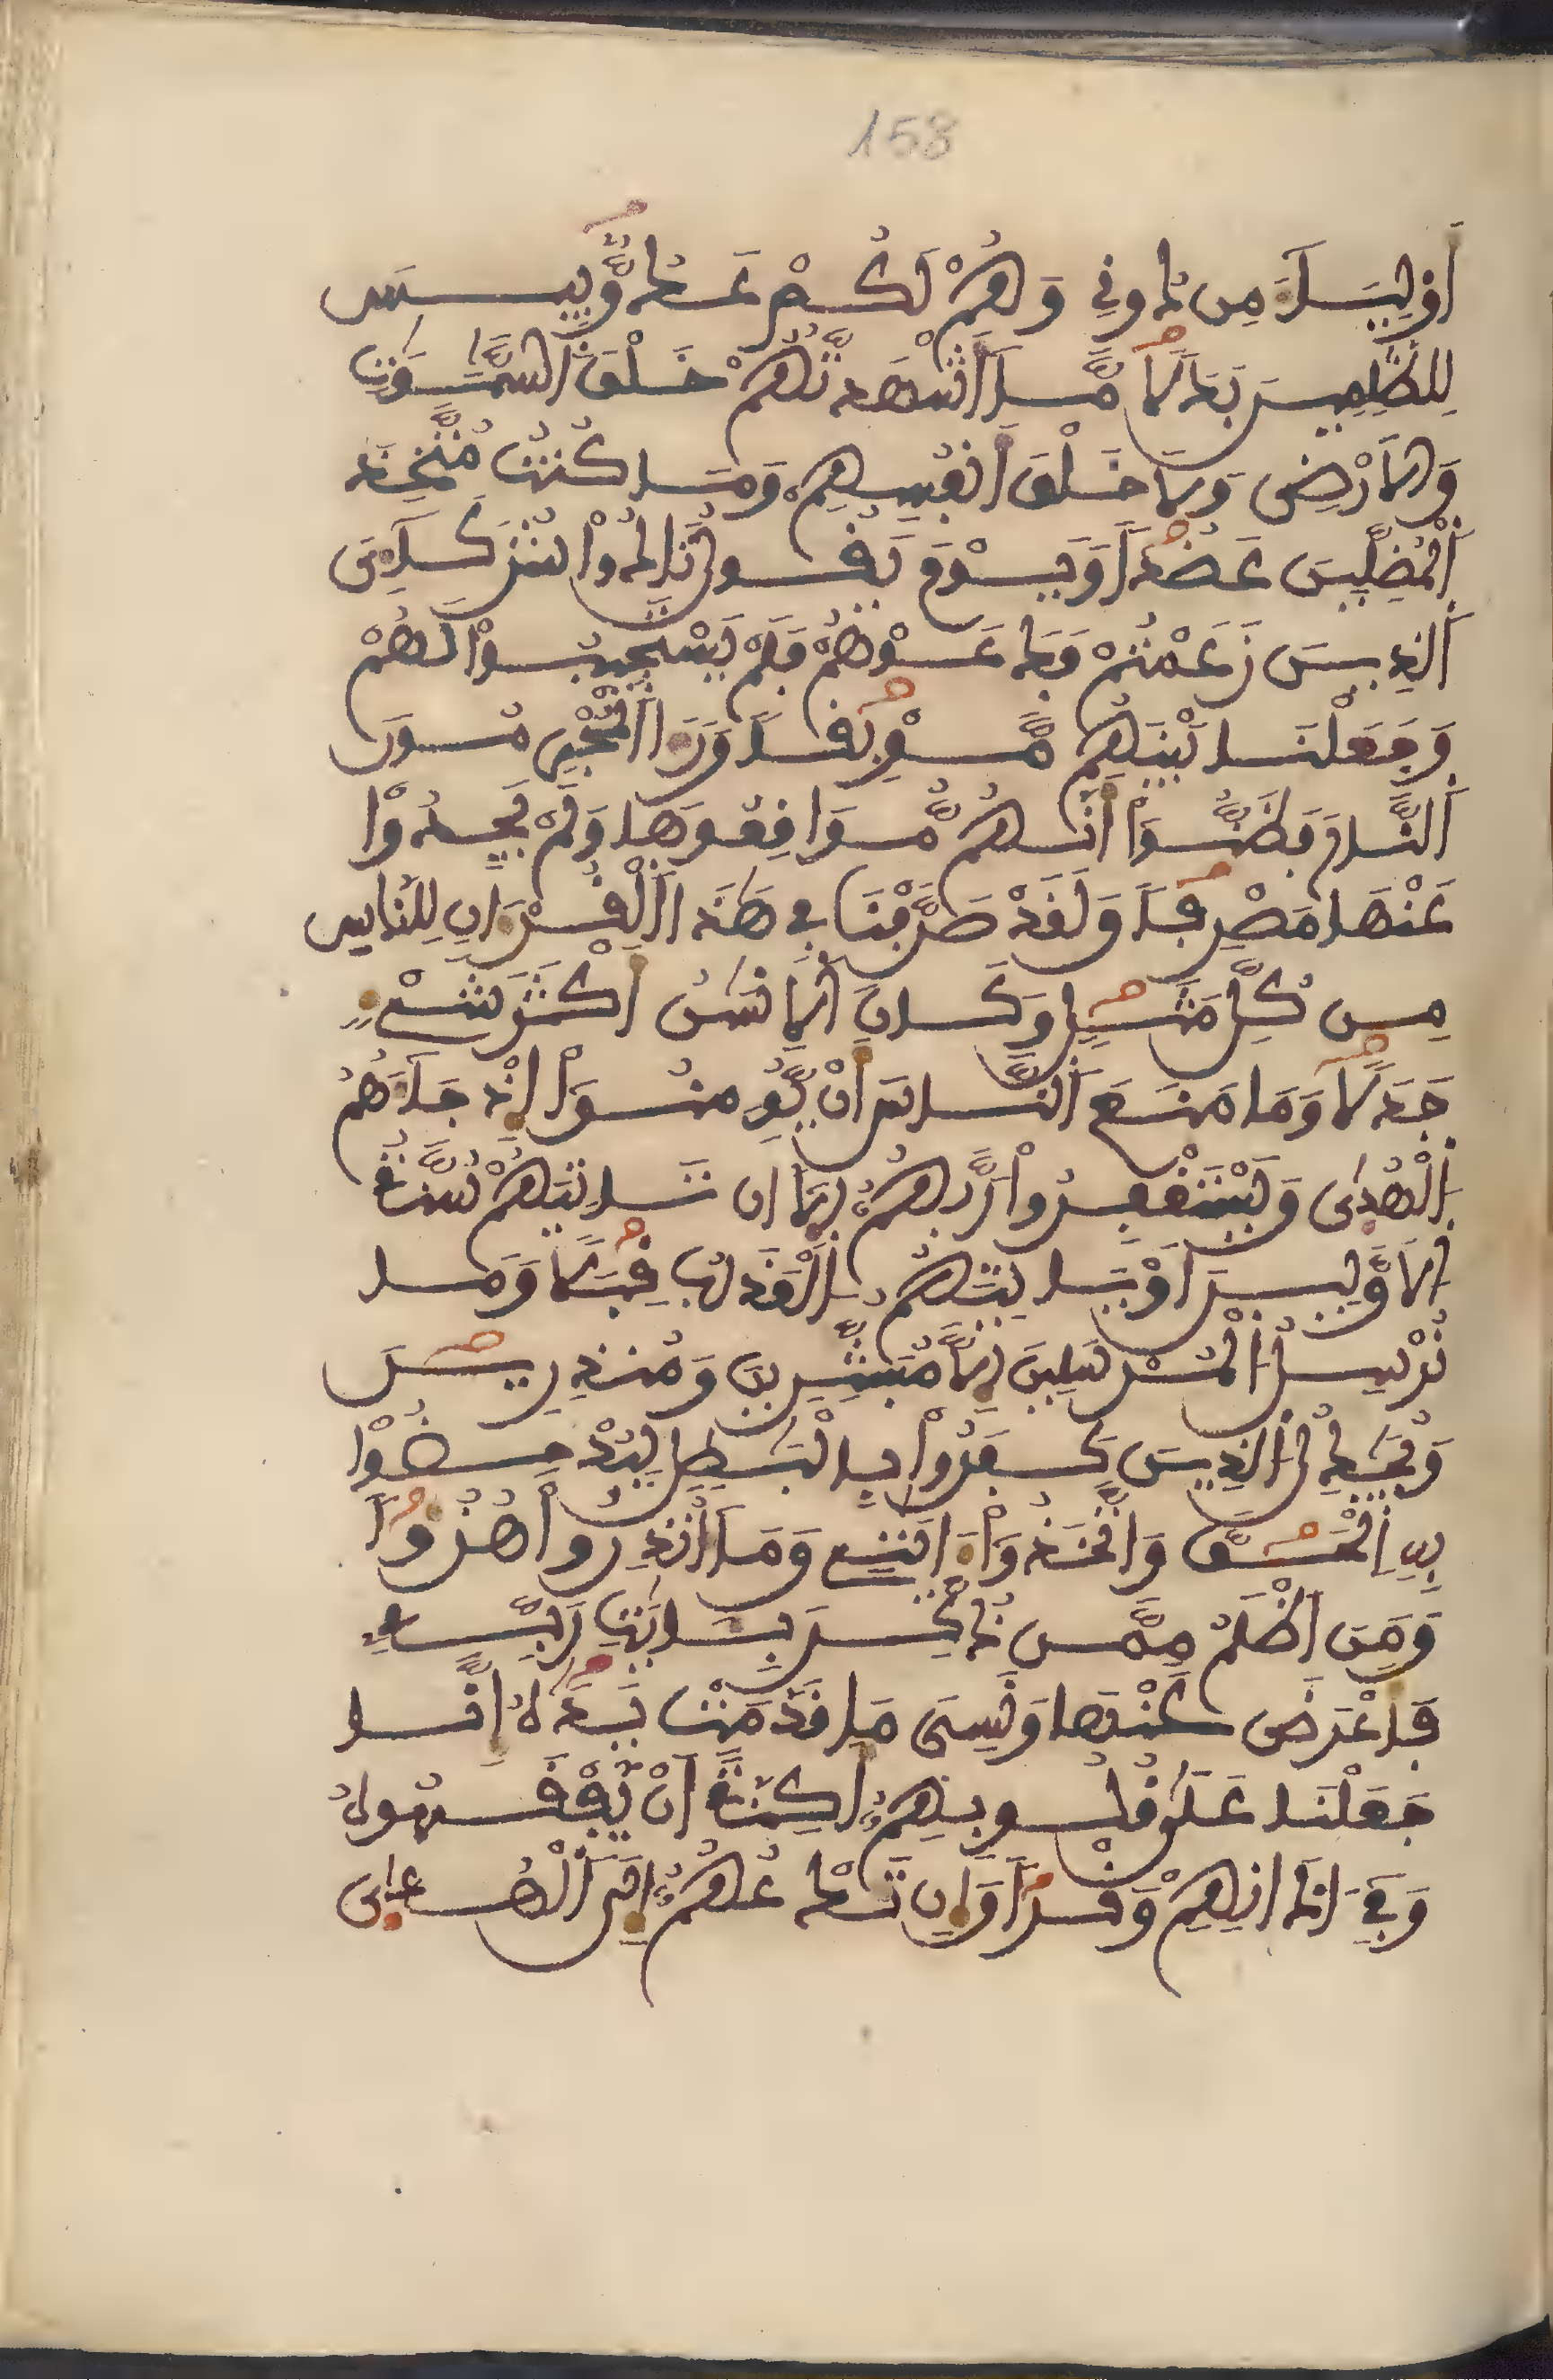 158
أَوْلِيَآءَ مِن دُونِي وَهُمْ لَكُمْ عَدُوٌّ بِيسَ
لِلظَّٰلِمِينَ بَدَلًا مَّآ أَشْهَدتُّهُمْ خَلْقَ اَلسَّمَٰوَٰتِ
وَالَارْضِ وَلَا خَلْقَ أَنفُسِهِمْ وَمَا كُنتُ مُتَّخِذَ
اَلْمُضِلِّينَ عَضُدًا وَيَوْمَ يَقُولُ نَادُواْ شُرَكَآءِيَ
اَلذِينَ زَعَمْتُمْ فَدَعَوْهُمْ فَلَمْ يَسْتَجِيبُواْ لَهُمْ
وَجَعَلْنَا بَيْنَهُم مَّوْبِقًا وَرَءَا اَلْمُجْرِمُونَ
اَلنَّارَ فَظَنُّوٓاْ أَنَّهُم مُّوَاقِعُوهَا وَلَمْ يَجِدُواْ
عَنْهَا مَصْرِفًا وَلَقَدْ صَرَّفْنَا فِي هَٰذَا اَلْقُرْءَانِ لِلنَّاسِ
مِن كُلِّ مَثَلٍ وَكَانَ اَلِانسَٰنُ أَكْثَرَ شَےْءٍ
جَدَلًا وَمَا مَنَعَ اَلنَّاسَ أَنْ يُّومِنُوٓاْ إِذْ جَآءَهُمُ
اَلْهُدَىٰ وَيَسْتَغْفِرُواْ رَبَّهُمُۥٓ إِلَّآ أَن تَاتِيَهُمْ سُنَّةُ
اَلَاوَّلِينَ أَوْ يَاتِيَهُمُ اَلْعَذَابُ قِبَلًا وَمَا
نُرْسِلُ اَلْمُرْسَلِينَ إِلَّا مُبَشِّرِينَ وَمُنذِرِينَ
وَيُجَٰدِلُ اَلذِينَ كَفَرُواْ بِالْبَٰطِلِ لِيُدْحِضُواْ
بِهِ اِلْحَقَّ وَاتَّخَذُوٓاْ ءَايَٰتِے وَمَآ أُنذِرُواْ هُزُؤًا
وَمَنَ اَظْلَمُ مِمَّن ذُكِّرَ بِـَٔايَٰتِ رَبِّهِۦ
فَأَعْرَضَ عَنْهَا وَنَسِيَ مَا قَدَّمَتْ يَدَٰهُ إِنَّا
جَعَلْنَا عَلَىٰ قُلُوبِهِمُۥٓ أَكِنَّةً أَنْ يَّفْقَهُوهُ
وَفِےٓ ءَاذَانِهِمْ وَقْرًا وَإِن تَدْعُهُمُۥٓ إِلَى اَلْهُدَىٰ